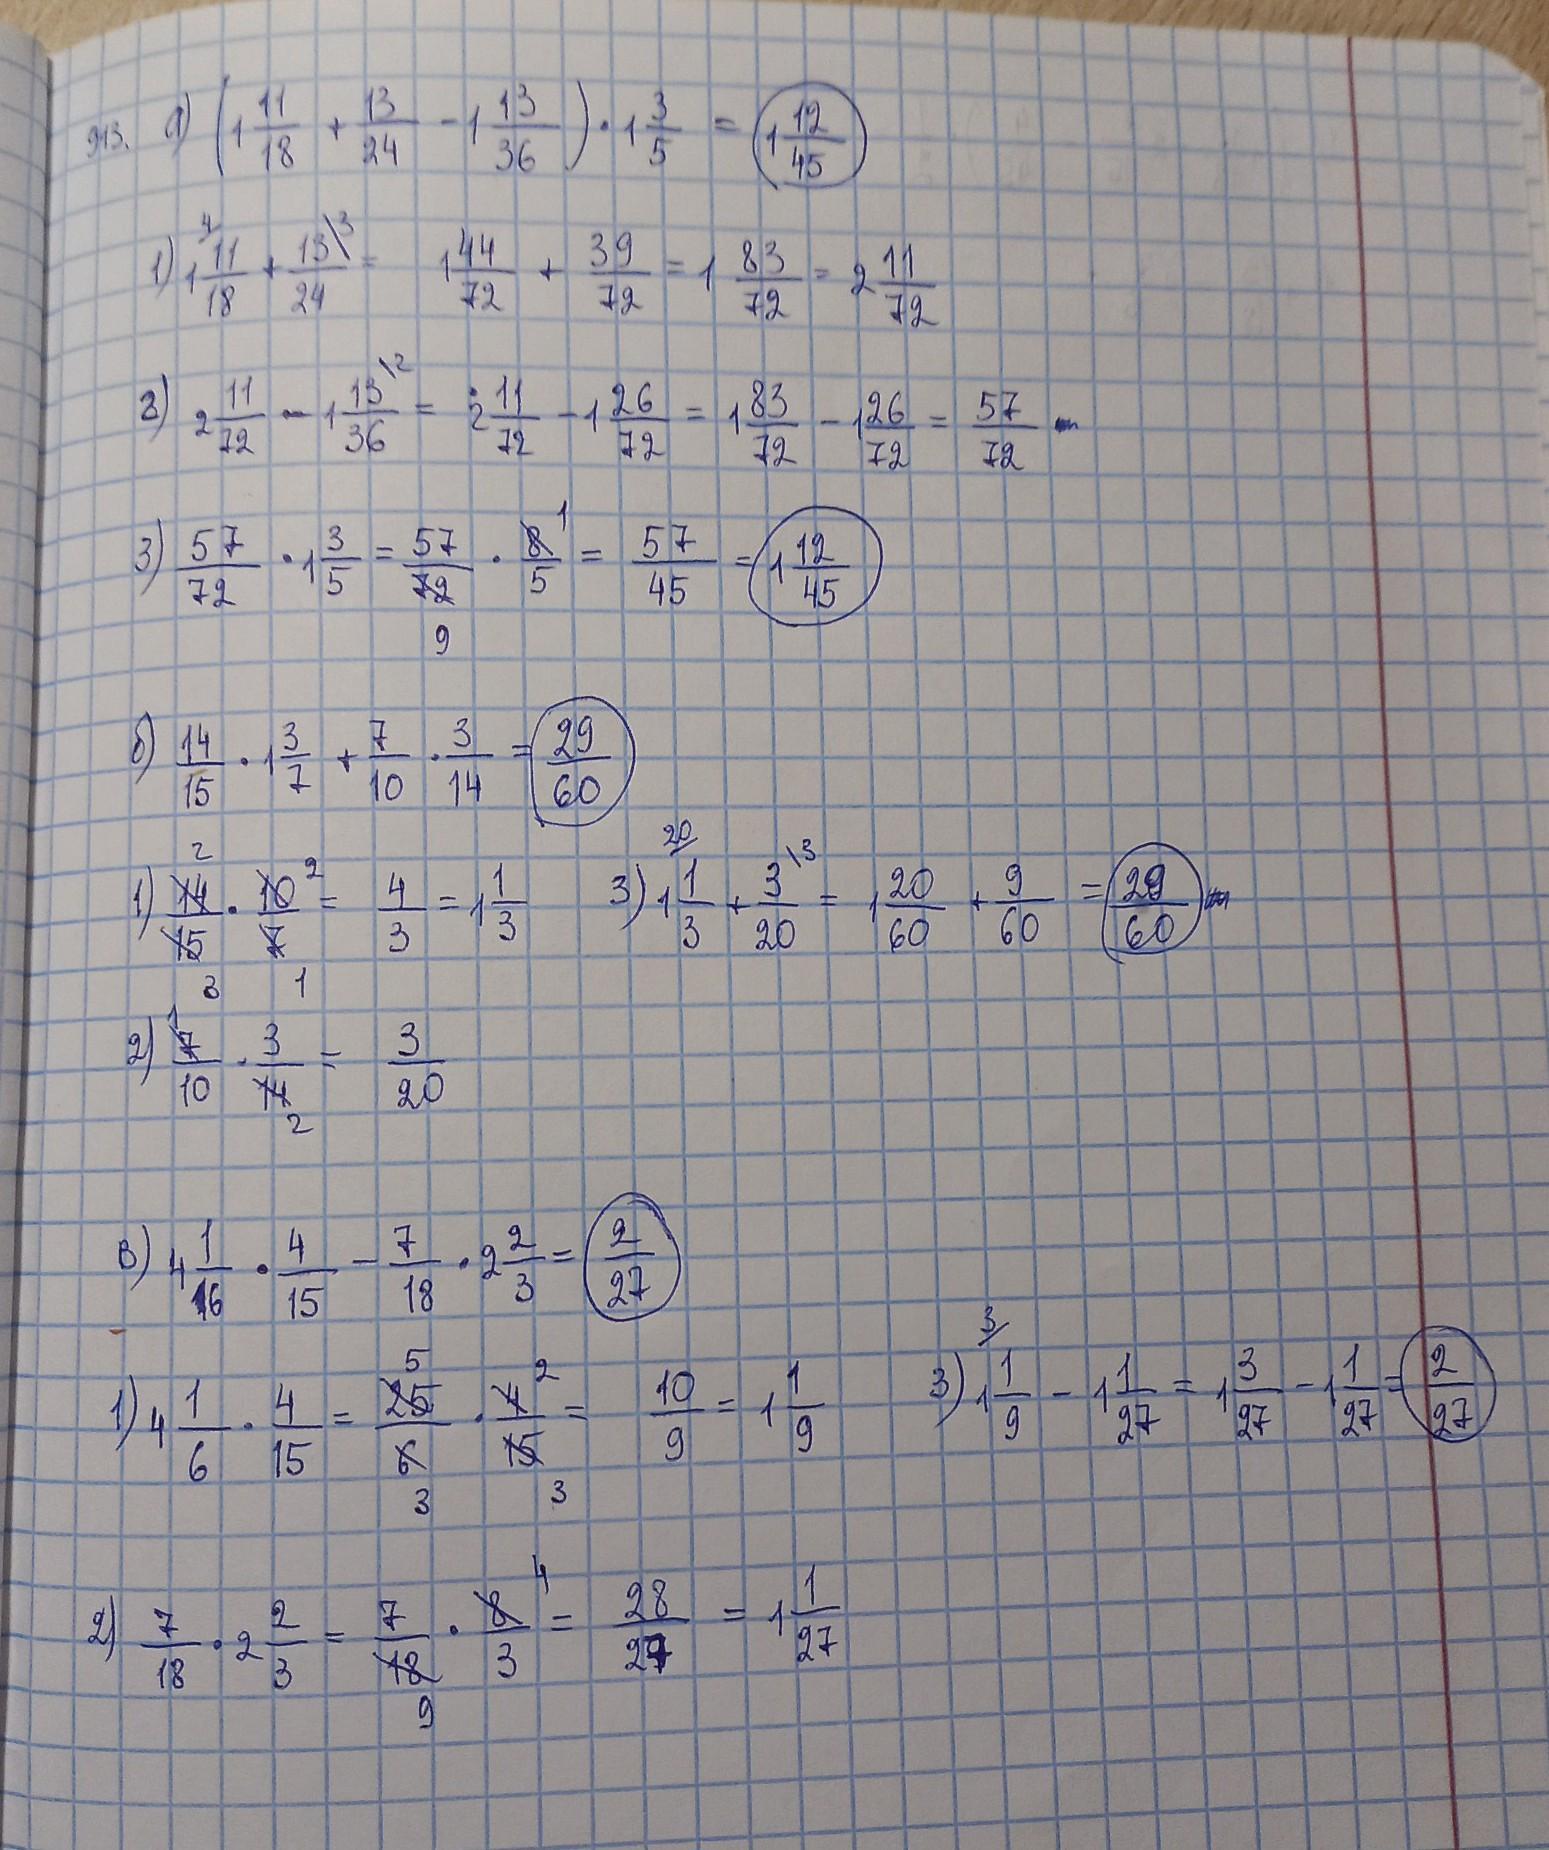 913. а) (1 11/18 + 13/24 - 1 13/36) · 1 3/5 = 1 12/45
1) 1 11/18 + 13/24 = 1 44/72 + 39/72 = 1 83/72 = 2 11/72
2) 2 11/72 - 1 13/36 = 2 11/72 - 1 26/72 = 1 83/72 - 1 26/72 = 57/72
3) 57/72 · 1 3/5 = 57/72 · 8/5 = 57/45 = 1 12/45
б) 14/15 · 1 3/7 + 7/10 · 3/14 = 29/60
1) 14/15 · 10/7 = 4/3 = 1 1/3
3) 1 1/3 + 3/20 = 1 20/60 + 9/60 = 29/60
2) 7/10 · 3/14 = 3/20
в) 4 1/16 · 4/15 - 7/18 · 2 2/3 = 2/27
1) 4 1/6 · 4/15 = 25/6 · 4/15 = 10/9 = 1 1/9
3) 1 1/9 - 1 1/27 = 1 3/27 - 1 1/27 = 2/27
2) 7/18 · 2 2/3 = 7/18 · 8/3 = 28/27 = 1 1/27